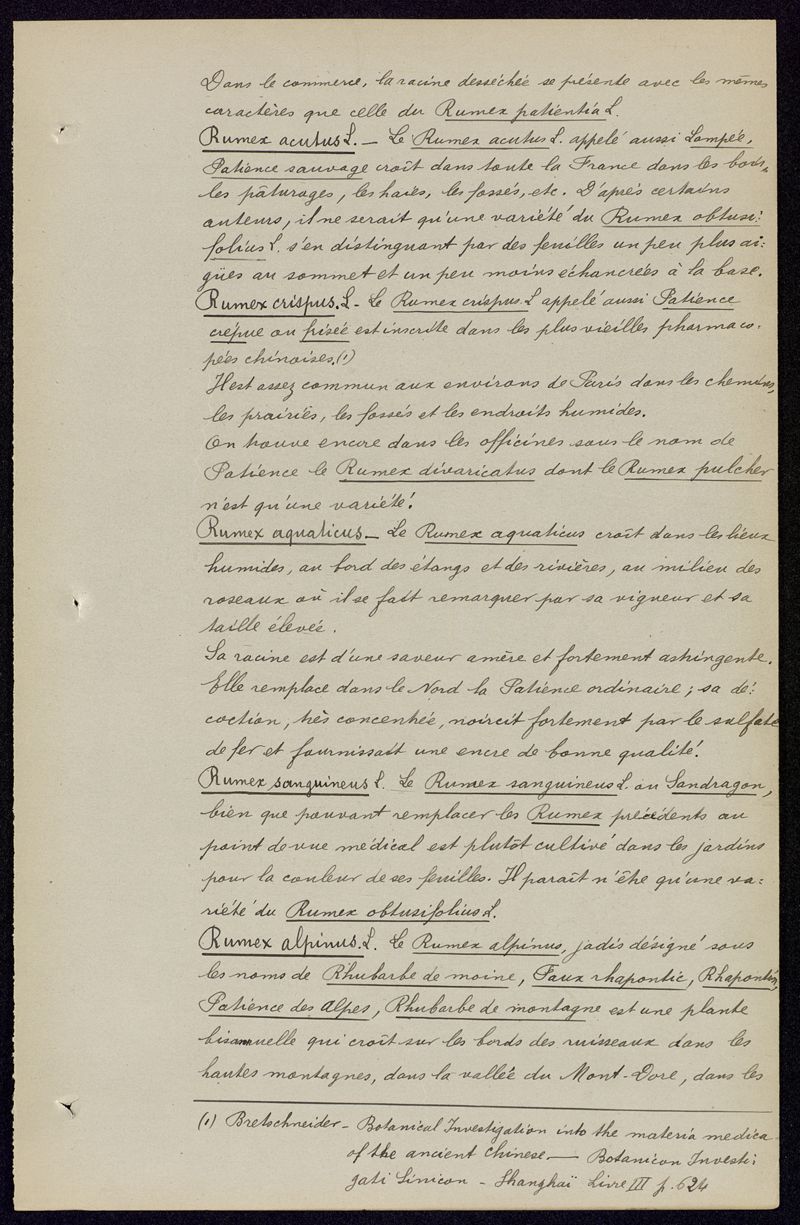 Dans le commerce, la racine desséchée se présente avec les mêmes
caractères que celle du Rumex patientia L.
Rumex acutus L. — Le Rumex acutus L. appelé aussi Lampée,
Patience sauvage croît dans toute la France dans les bois,
les pâturages, les haies, les fossés, etc. D'après certains
auteurs, il ne serait qu'une variété du Rumex obtusi:
folius L. s'en distinguant par des feuilles un peu plus ai:
gües au sommet et un peu moins échancrées à la base.
Rumex crispus. L - Le Rumex crispus. L appelé aussi Patience
crépue ou frisée est inscrite dans les plus vieilles pharmaco:
pées chinoises. (1)
Il est assez commun aux environs de Paris dans les chemins,
les prairies, les fossés et les endroits humides.
On trouve encore dans les officines sous le nom de
Patience le Rumex divaricatus dont le Rumex pulcher
n'est qu'une variété.
Rumex aquaticus — Le Rumex aquaticus croît dans les lieux
humides, au bord des étangs et des rivières, au milieu des
roseaux où il se fait remarquer par sa vigueur et sa
taille élevée.
Sa racine est d'une saveur amère et fortement astringente.
Elle remplace dans le Nord la Patience ordinaire ; sa dé:
coction, très concentrée, noircit fortement par le sulfate
de fer et fournissait une encre de bonne qualité.
Rumex sanguineus L. Le Rumex sanguineus L. ou Sandragon,
bien que pouvant remplacer les Rumex précédents au
point de vue médical est plutôt cultivé dans les jardins
pour la couleur de ses feuilles. Il paraît n'être qu'une va:
riété du Rumex obtusifolius L.
Rumex alpinus. L. Le Rumex alpinus, jadis désigné sous
les noms de Rhubarbe de moine, Faux rhapontic, Rhapontin,
Patience des Alpes, Rhubarbe de montagne est une plante
bisannuelle qui croît sur les bords des ruisseaux dans les
hautes montagnes, dans la vallée du Mont-Dore, dans les
(1) Bretschneider - Botanical Investigation into the materia medica
of the ancient Chinese — Botanicon Investi:
gati Sinicon - Shanghaï Livre III p. 624